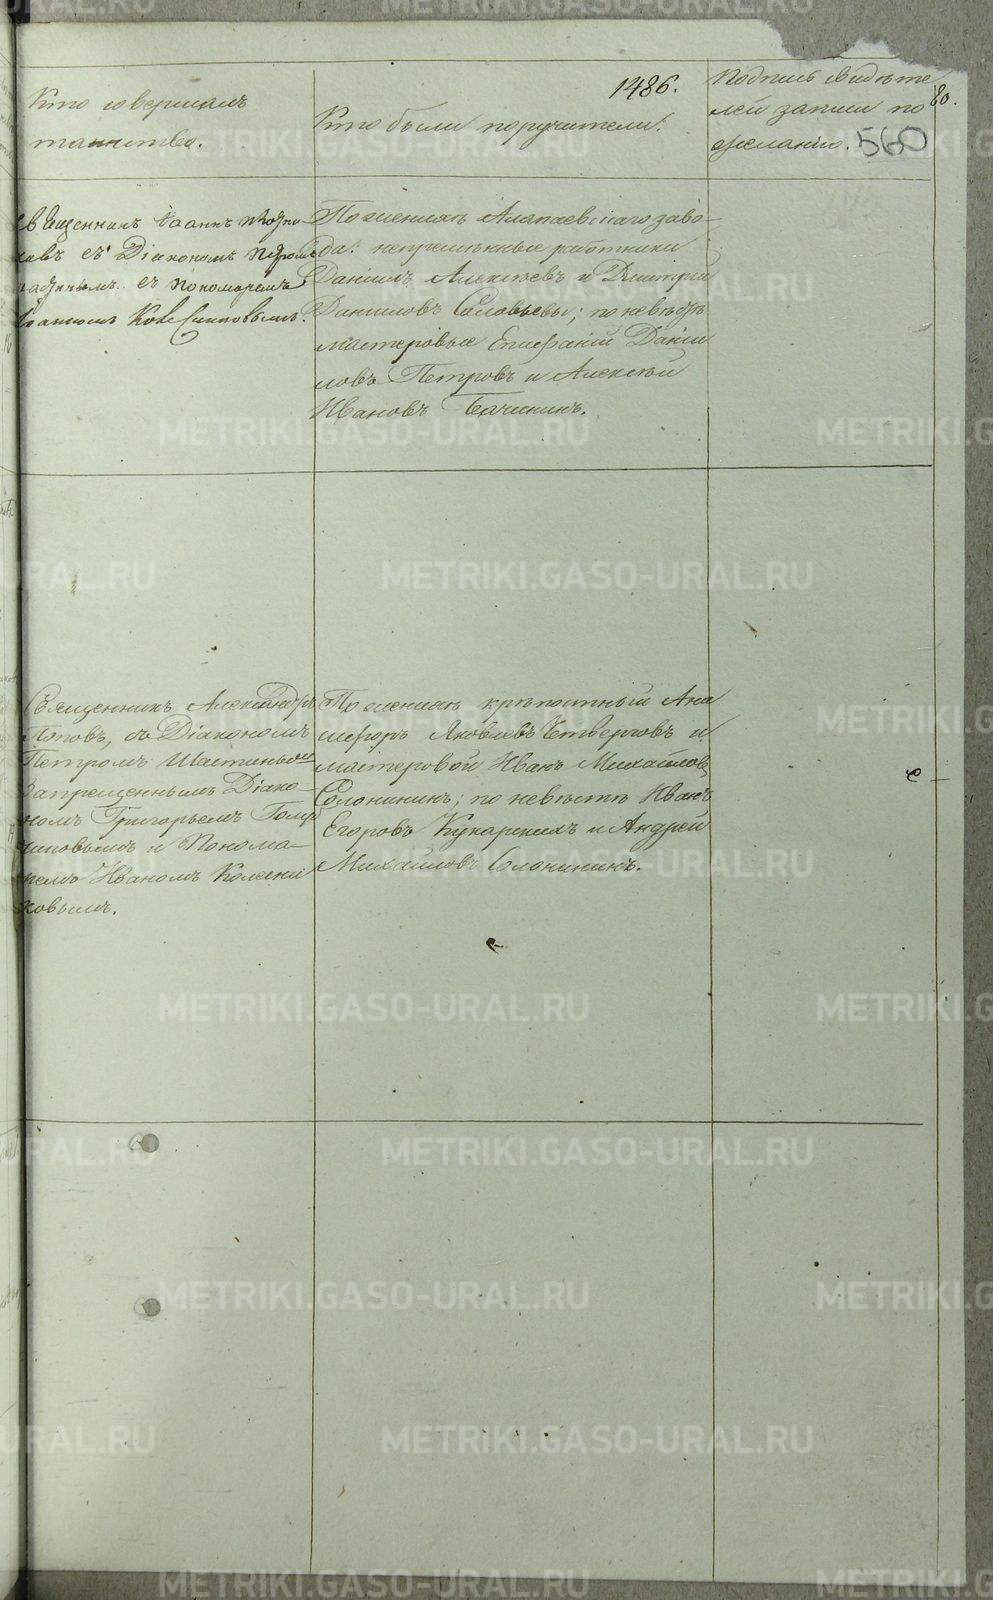 1486.
80.
560
Кто совершалъ
таинство.
Кто были поручители.
Подпись свидѣте
лей записи по
желанію.
Священникъ Іоаннъ
съ Діакономъ
съ пономаремъ
Іоанномъ
По женихѣ Алапаевскаго заво-
да: непремѣнные работники
Даніилъ Алексѣевъ и Дмитрій
Даниловъ Соловьевы; по невѣстѣ
мастеровые Епифаній Дании
ловъ Петровъ и Алексѣй
Ивановъ Бачининъ.
Священникъ Александръ
Поповъ, съ Діакономъ
Петромъ
Запрещеннымъ Діако-
номъ Григорьемъ
и Понома-
ремъ Иваномъ Колесни
ковымъ.
По женихѣ крѣпостный Ани
Яковлевъ Четверговъ и
мастеровой Иванъ Михайловъ
Солонининъ; по невѣстѣ Иванъ
Егоровъ Кукарскихъ и Андрей
Михайловъ Солонининъ.
METRIKI.GASO-URAL.RU